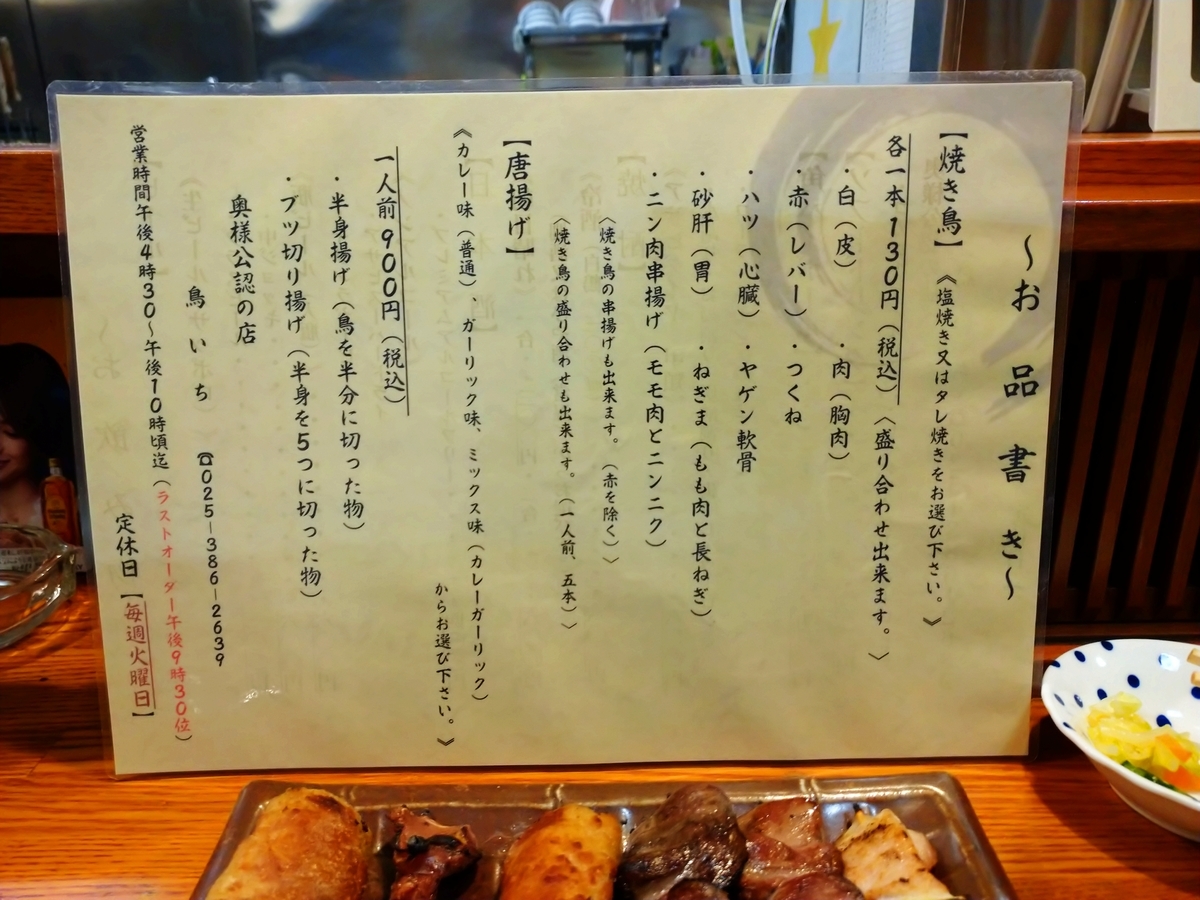 ～お品書き～
【焼き鳥】 《塩焼き又はタレ焼きをお選び下さい。》
各一本 130円（税込）〈盛り合わせ出来ます。〉
・白（皮） ・肉（胸肉）
・赤（レバー） ・つくね
・ハツ（心臓） ・ヤゲン軟骨
・砂肝（胃） ・ねぎま（もも肉と長ねぎ）
・ニン肉串揚げ（モモ肉とニンニク）
〈焼き鳥の串揚げも出来ます。（赤を除く）〉
〈焼き鳥の盛り合わせも出来ます。（一人前、五本）〉
【唐揚げ】
《カレー味（普通）、ガーリック味、ミックス味（カレーガーリック）
からお選び下さい。》
一人前 900円（税込）
・半身揚げ（鳥を半分に切った物）
・ブツ切り揚げ（半身を5つに切った物）
奥様公認の店
鳥いち ☎025－386－2639
営業時間午後4時30～午後10時頃迄（ラストオーダー午後9時30位）
定休日【毎週火曜日】